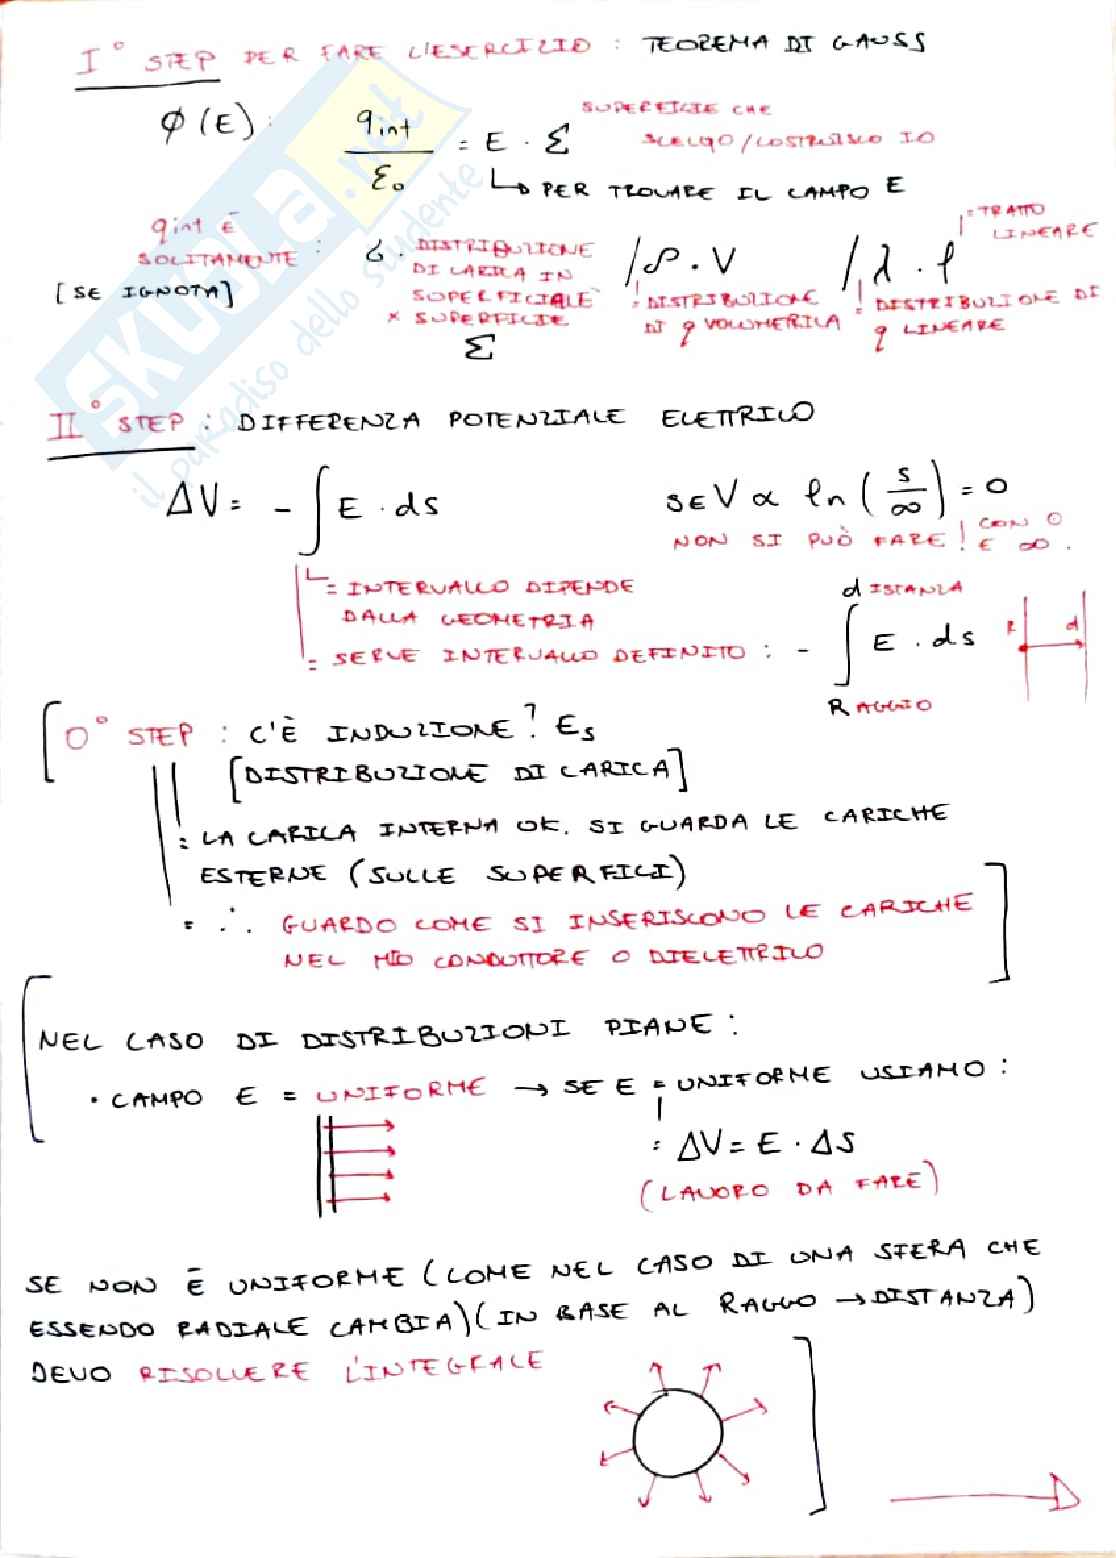 I° STEP PER FARE L'ESERCIZIO : TEOREMA DI GAUSS
φ(E): qint/ε₀ = E · Σ SUPERFICIE CHE SCELGO/COSTRUISCO IO
↳ PER TROVARE IL CAMPO E
qint È SOLITAMENTE :
[SE IGNOTA]
σ · DISTRIBUZIONE DI CARICA IN SUPERFICIALE × SUPERFICIE Σ
/ρ · V
: DISTRIBUZIONE DI q VOLUMERICA
/λ · l
= TRATTO LINEARE
: DISTRIBUZIONE DI q LINEARE
II° STEP : DIFFERENZA POTENZIALE ELETTRICO
ΔV = - ∫ E · ds
SE V ∝ ln(s/∞) = 0
NON SI PUÒ FARE! CON 0 E ∞.
= INTERVALLO DIPENDE
DALLA GEOMETRIA
= SERVE INTERVALLO DEFINITO : - ∫ E · ds
dISTANZA
RAGGIO
R d
[0° STEP : C'È INDUZIONE? Es
[DISTRIBUZIONE DI CARICA]
: LA CARICA INTERNA OK. SI GUARDA LE CARICHE
ESTERNE (SULLE SUPERFICI)
= ∴ GUARDO COME SI INSERISCONO LE CARICHE
NEL MIO CONDUTTORE O DIELETTRICO ]
[NEL CASO DI DISTRIBUZIONI PIANE :
· CAMPO E = UNIFORME → SE E = UNIFORME USIAMO :
: ΔV = E · ΔS
(LAVORO DA FARE)
SE NON È UNIFORME (COME NEL CASO DI UNA SFERA CHE
ESSENDO RADIALE CAMBIA) (IN BASE AL RAGGO → DISTANZA)
DEVO RISOLVERE L'INTEGRALE ]
SKUOLA.net
il paradiso dello studente